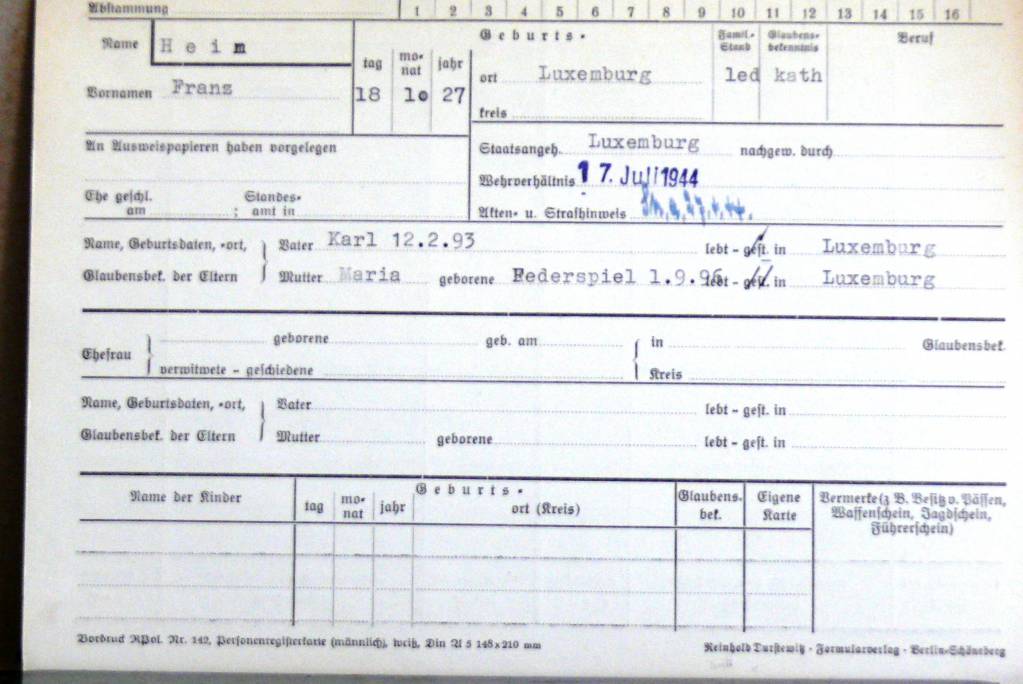 Abstammung 1 2 3 4 5 6 7 8 9 10 11 12 13 14 15 16
Name Heim
Vornamen Franz
tag monat jahr
18 10 27
Geburts-
ort Luxemburg
kreis
Famil.-Stand led
Glaubens-bekenntnis kath
Beruf
An Ausweispapieren haben vorgelegen
Ehe geschl. am ; Standes-amt in
Staatsangeh. Luxemburg nachgew. durch
Wehrverhältnis 17. Juli 1944
Akten- u. Strafhinweis
Name, Geburtsdaten, -ort, Vater Karl 12.2.93 lebt - gest. in Luxemburg
Glaubensbek. der Eltern Mutter Maria geborene Federspiel 1.9.96 lebt - gest. in Luxemburg
Ehefrau geborene geb. am in Glaubensbek.
verwitwete - geschiedene Kreis
Name, Geburtsdaten, -ort, Vater lebt - gest. in
Glaubensbek. der Eltern Mutter geborene lebt - gest. in
Name der Kinder
Geburts-
tag monat jahr ort (Kreis)
Glaubens-bek.
Eigene Karte
Vermerke (z. B. Besitz v. Pässen,
Waffenschein, Jagdschein,
Führerschein)
Vordruck RPol. Nr. 142, Personenregisterkarte (männlich), weiß, Din A 5 148x210 mm
Reinhold Durstewitz · Formularverlag · Berlin-Schöneberg